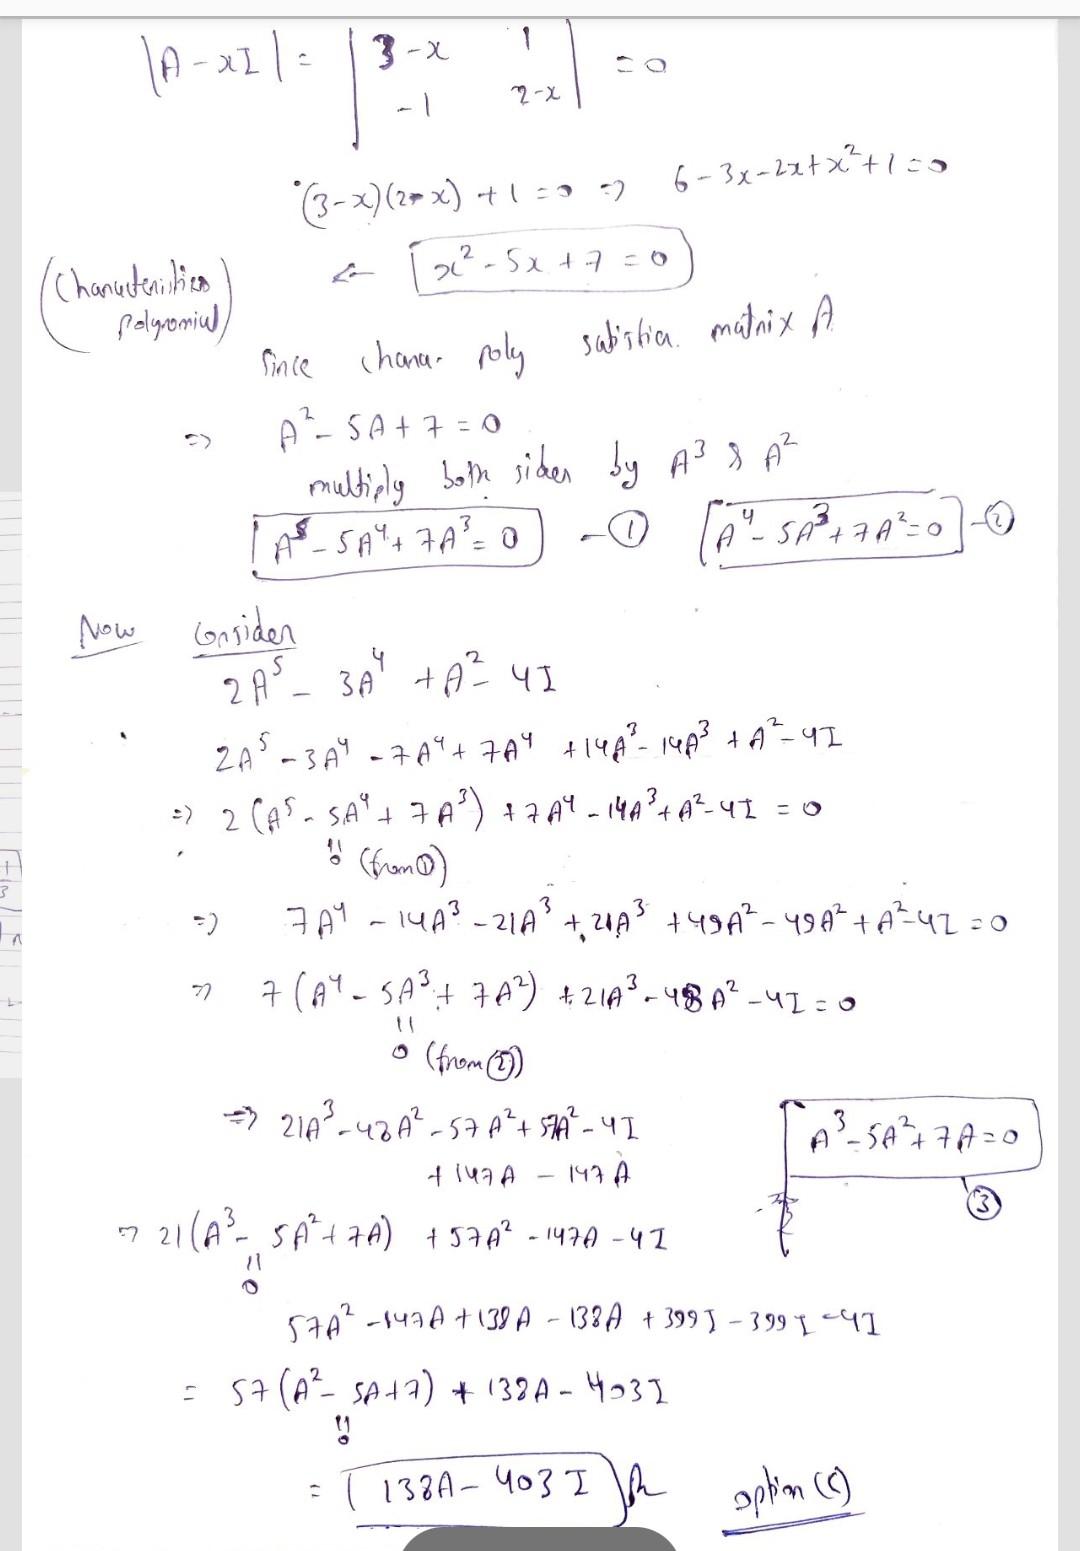 |A - xI| = | 3-x 1 | = 0
-1 2-x
(3-x)(2-x) + 1 = 0 ⇒ 6 - 3x - 2x + x² + 1 = 0
(Characteristics polynomial) ← x² - 5x + 7 = 0
Since char poly satisfies matrix A
⇒ A² - 5A + 7 = 0
multiply both sides by A³ & A²
A⁵ - 5A⁴ + 7A³ = 0 - ① A⁴ - 5A³ + 7A² = 0 - ②
Now Consider
2A⁵ - 3A⁴ + A² - 4I
2A⁵ - 3A⁴ - 7A⁴ + 7A⁴ + 14A³ - 14A³ + A² - 4I
⇒ 2(A⁵ - 5A⁴ + 7A³) + 7A⁴ - 14A³ + A² - 4I = 0
" 0 (from ①)
⇒ 7A⁴ - 14A³ - 21A³ + 21A³ + 49A² - 49A² + A² - 4I = 0
⇒ 7(A⁴ - 5A³ + 7A²) + 21A³ - 48A² - 4I = 0
" 0 (from ②)
⇒ 21A³ - 48A² - 57A² + 57A² - 4I
+ 147A - 147A
A³ - 5A² + 7A = 0
③
⇒ 21(A³ - 5A² + 7A) + 57A² - 147A - 4I
" 0
57A² - 147A + 138A - 138A + 399I - 399I - 4I
= 57(A² - 5A + 7) + 138A - 403I
" 0
= 138A - 403I option (c)